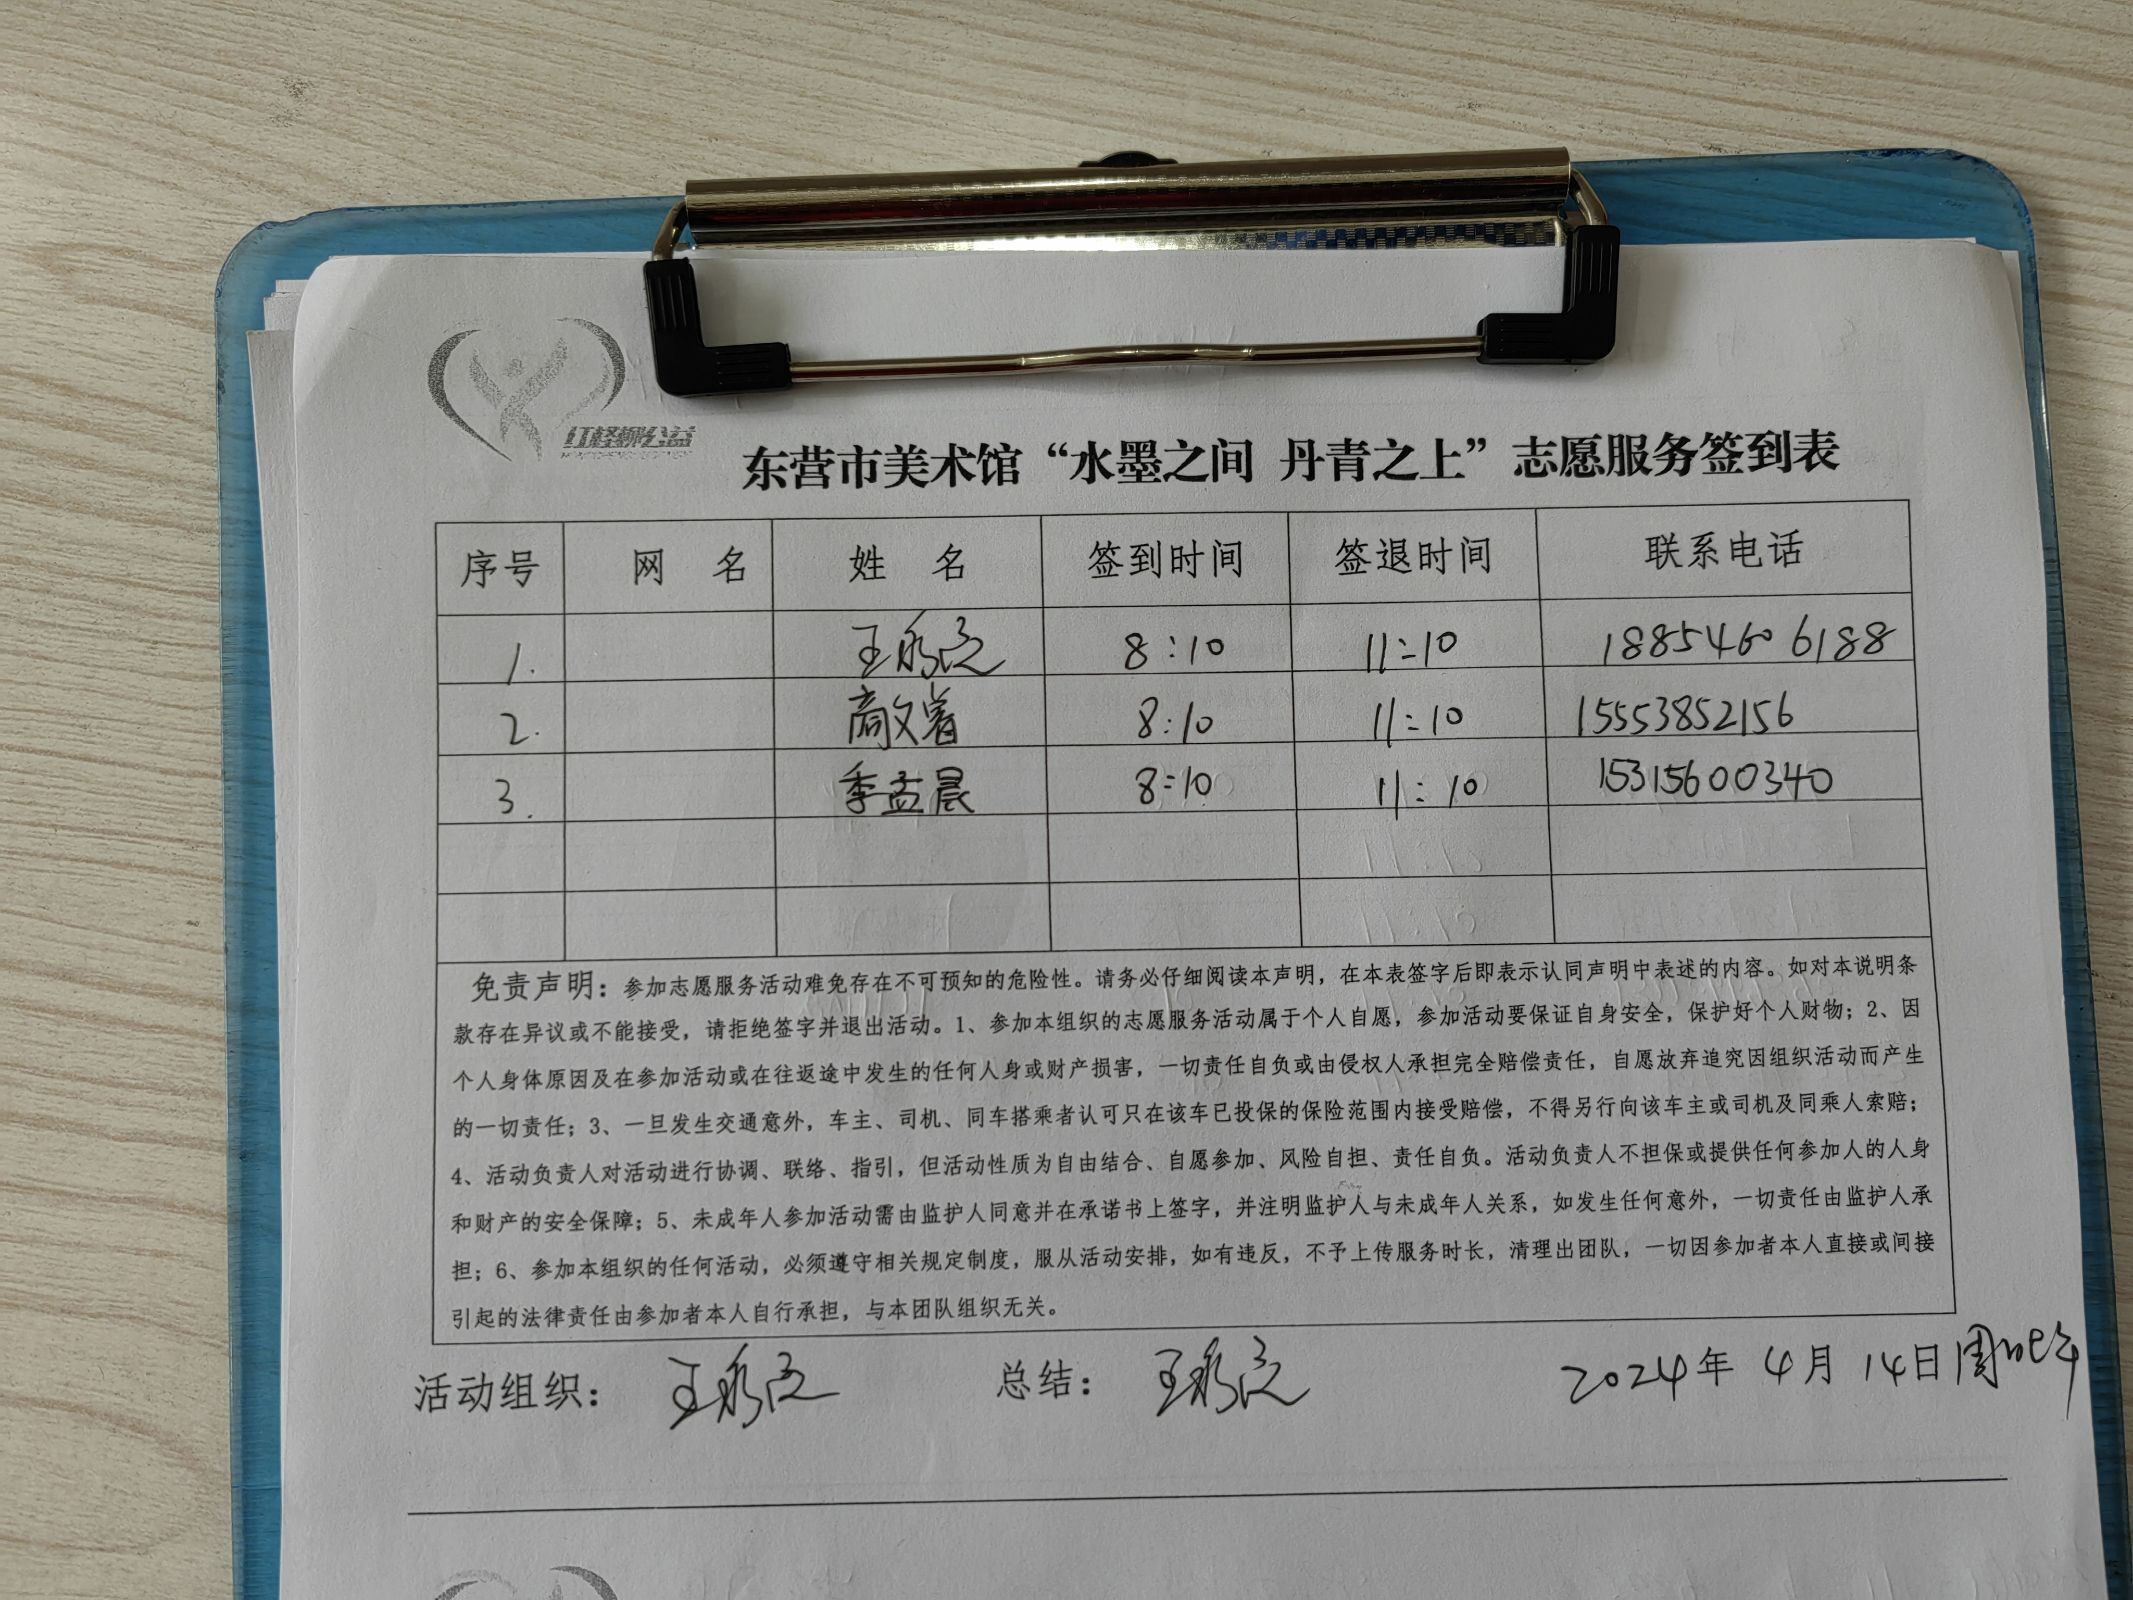 红柽柳公益
东营市美术馆“水墨之间 丹青之上”志愿服务签到表
序号 网 名 姓 名 签到时间 签退时间 联系电话
1. 8:10 11:10 18854606188
2. 8:10 11:10 15553852156
3. 季孟晨 8:10 11:10 15315600340
免责声明：参加志愿服务活动难免存在不可预知的危险性。请务必仔细阅读本声明，在本表签字后即表示认同声明中表述的内容。如对本说明条
款存在异议或不能接受，请拒绝签字并退出活动。1、参加本组织的志愿服务活动属于个人自愿，参加活动要保证自身安全，保护好个人财物；2、因
个人身体原因及在参加活动或在往返途中发生的任何人身或财产损害，一切责任自负或由侵权人承担完全赔偿责任，自愿放弃追究因组织活动而产生
的一切责任；3、一旦发生交通意外，车主、司机、同车搭乘者认可只在该车已投保的保险范围内接受赔偿，不得另行向该车主或司机及同乘人索赔；
4、活动负责人对活动进行协调、联络、指引，但活动性质为自由结合、自愿参加、风险自担、责任自负。活动负责人不担保或提供任何参加人的人身
和财产的安全保障；5、未成年人参加活动需由监护人同意并在承诺书上签字，并注明监护人与未成年人关系，如发生任何意外，一切责任由监护人承
担；6、参加本组织的任何活动，必须遵守相关规定制度，服从活动安排，如有违反，不予上传服务时长，清理出团队，一切因参加者本人直接或间接
引起的法律责任由参加者本人自行承担，与本团队组织无关。
活动组织： 总结： 2024年 4月 14日周日上午